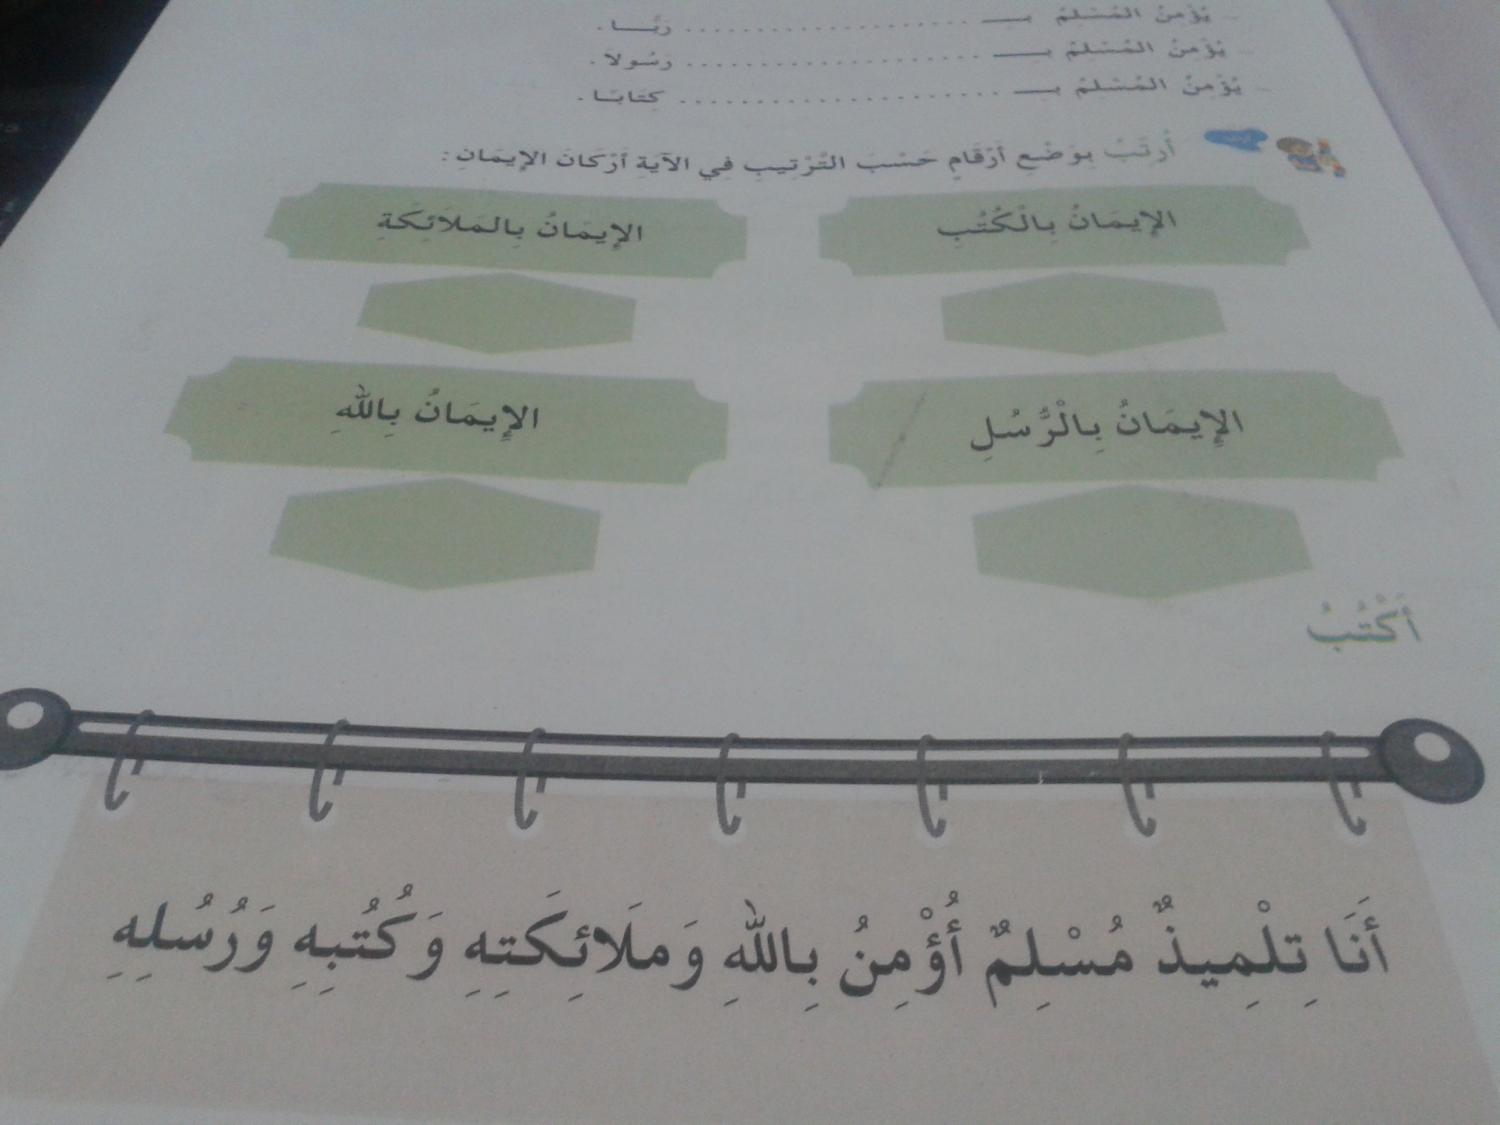 يُؤْمِنُ المُسْلِمُ بِـ ........................ رَبًّـا.
يُؤْمِنُ المُسْلِمُ بِـ ........................ رَسُولاً.
يُؤْمِنُ المُسْلِمُ بِـ ........................ كِتَابًـا.
أُرَتِّبُ بِوَضْعِ أَرْقَامٍ حَسْبَ التَّرْتِيبِ فِي الآيَةِ أَرْكَانَ الإِيمَانِ:
الإِيمَانُ بِالْكُتُبِ الإِيمَانُ بِالمَلَائِكَةِ
الإِيمَانُ بِالْرُّسُلِ الإِيمَانُ بِاللهِ
أَكْتُبُ
أَنَا تِلْمِيذٌ مُسْلِمٌ أُؤْمِنُ بِاللهِ وَملَائِكَتِهِ وَكُتُبِهِ وَرُسُلِهِ